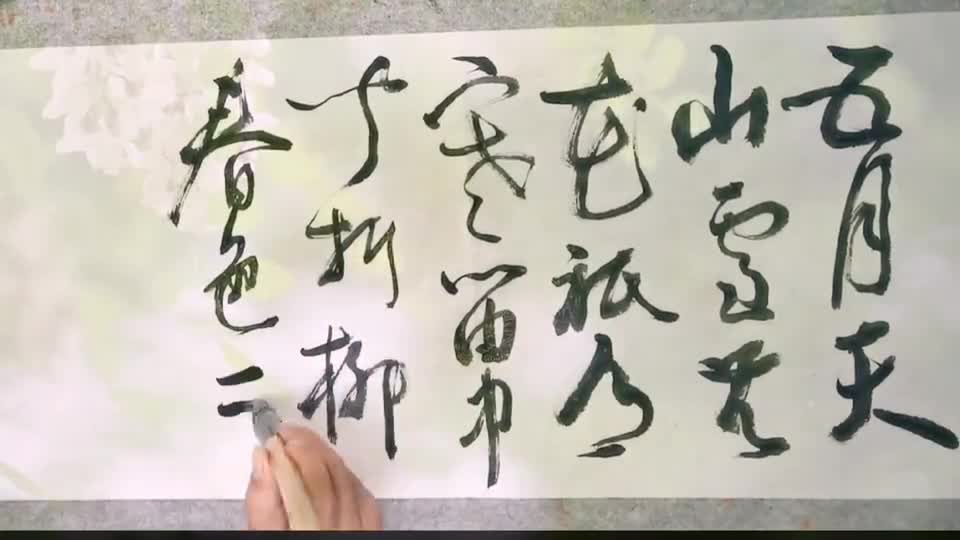 五月天
山雪无
花祇有
寒笛中
闻折柳
春色二